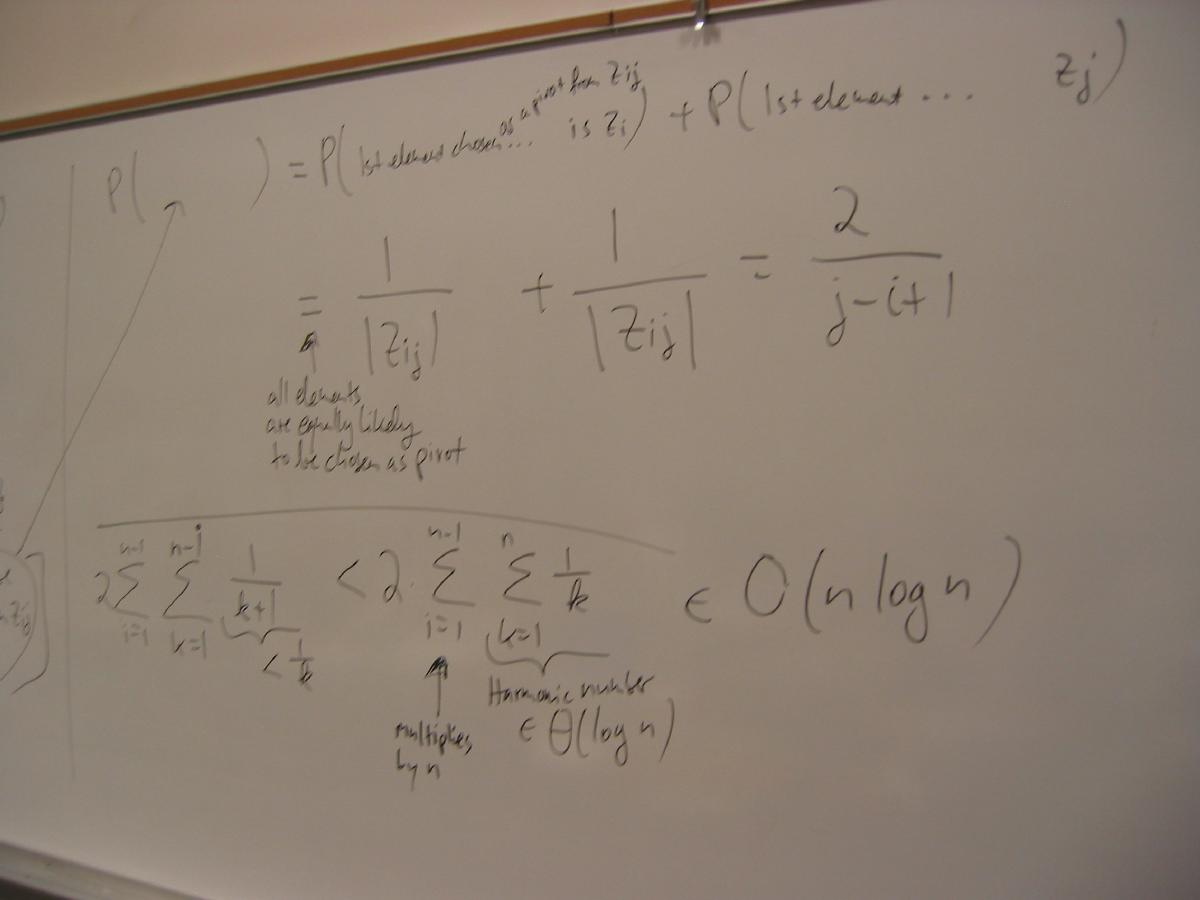 P( ) = P(1st element chosen as a pivot from Zij ... is Zi) + P(1st element ... Zj)
= 1/|Zij| + 1/|Zij| = 2/(j-i+1)
all elements
are equally likely
to be chosen as pivot
2 Σ_{i=1}^{n-1} Σ_{k=1}^{n-i} 1/(k+1) < 2 · Σ_{i=1}^{n-1} Σ_{k=1}^{n} 1/k ∈ O(n log n)
< 1/k
Harmonic number
∈ Θ(log n)
multiplies
by n
Zij